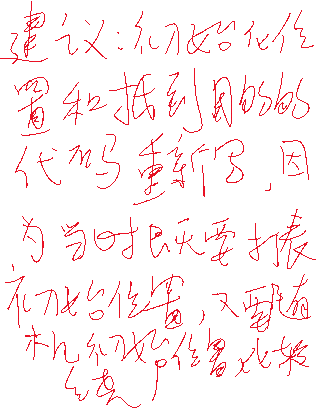 建议:初始化位
置和抵到目的的
代码重新写,因
为当时既要打表
初始位置,又要随
机初始位置比较
乱,